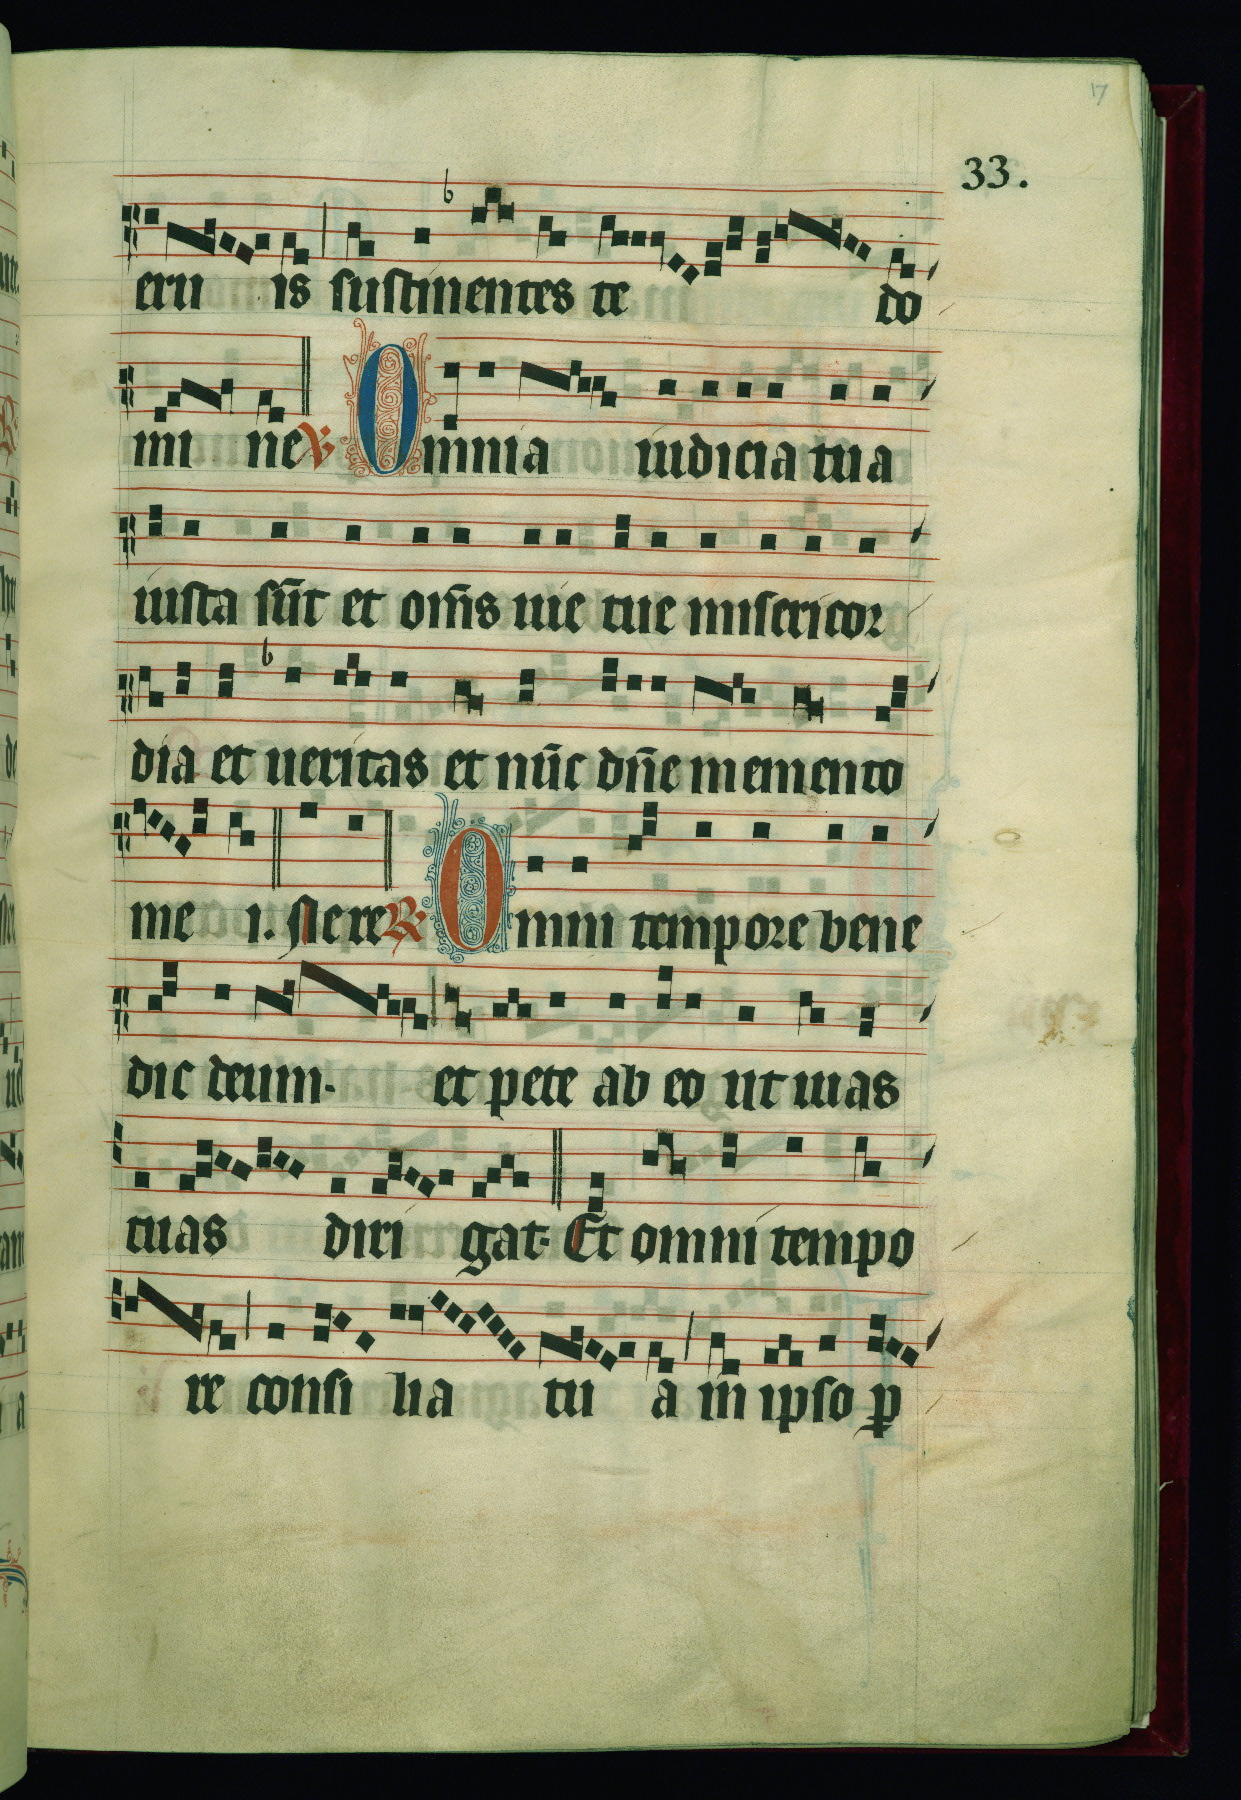 17
33.
eru is sustinentes te do
mi ne ℣ Omnia iudicia tua
iusta sūt et om̄s uie tue misericor
dia et ueritas et nūc dn̄e memento
me i. Ne re ℟ Omni tempore bene
dic deum. et pete ab eo ut uias
tuas diri gat. Et omni tempo
re consi lia tu a in ipso p